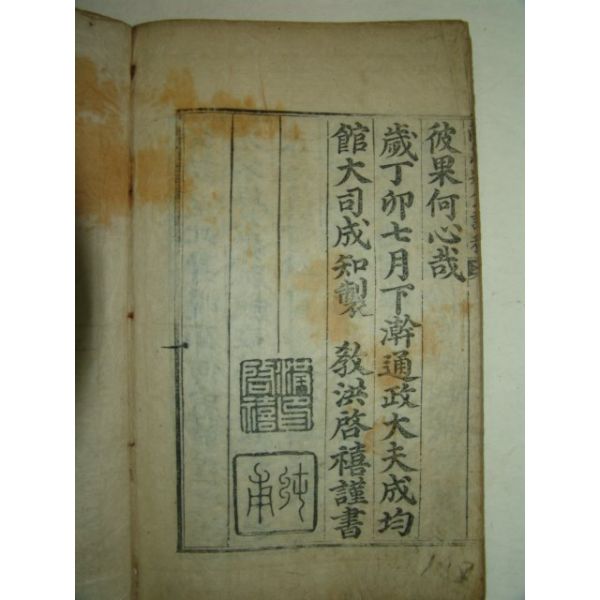 彼果何心哉
歲丁卯七月下澣通政大夫成均
館大司成知製 敎洪啓禧謹書